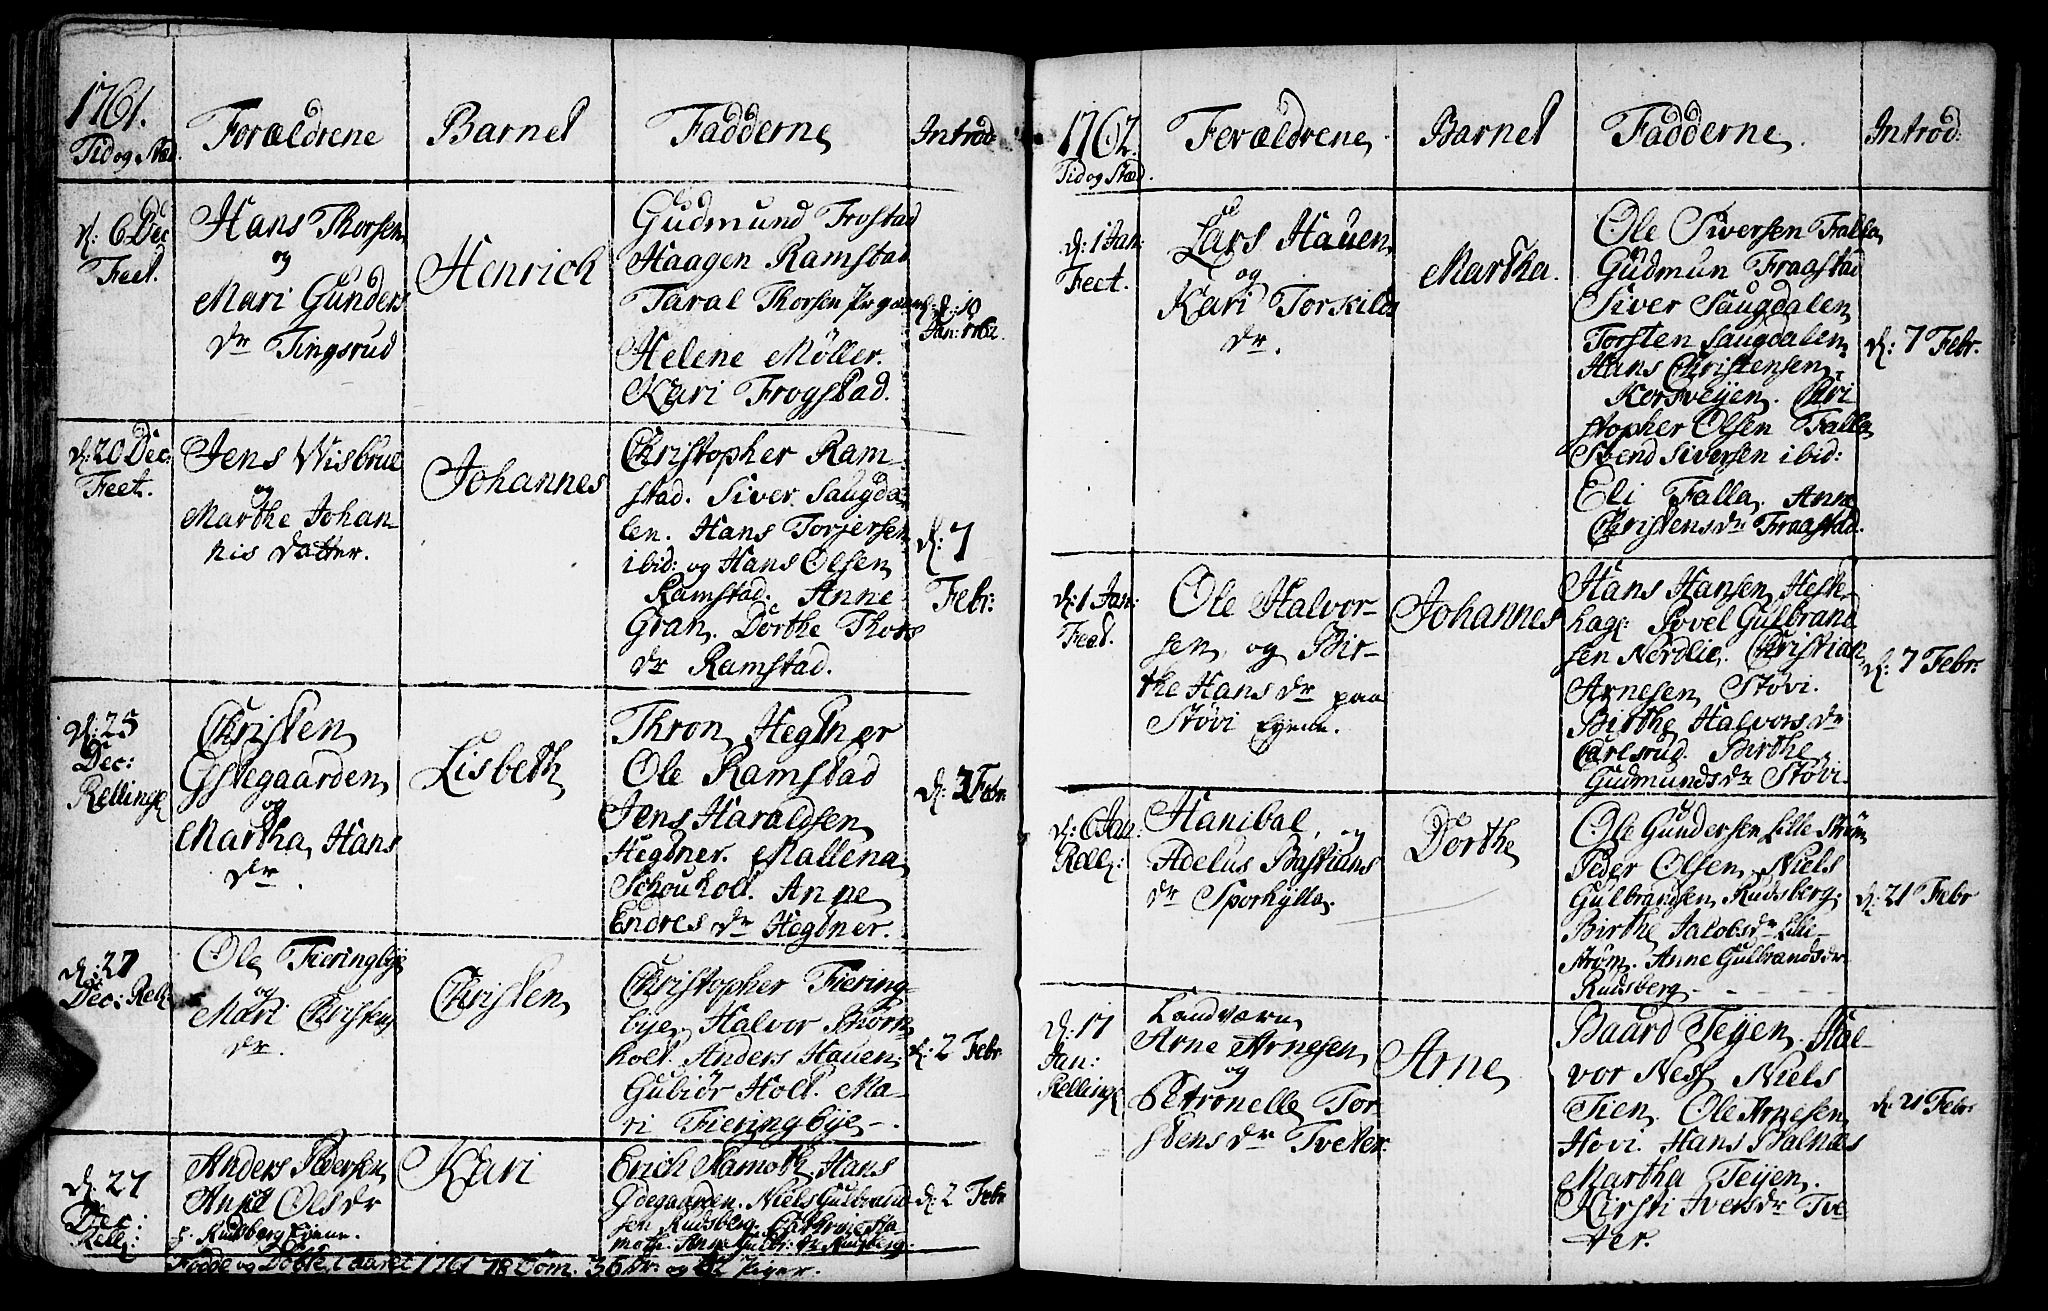 1761.
Tid og Stæd.
Forældrene
Barnet
Fadderne
Introd
d: 6 Dec
Feet.
Hans Thorsen
og
Mari Gunders
dr Tingsrud
Henrich
Gudmund Frostad
Haagen Ramstad
Taral Thorsen
Helene Möller.
Kari Frogstad.
d: 10
Jan: 1762.
d: 20 Dec:
Feet.
Jens Wisbrue
og
Marthe Johan-
nis datter.
Johannes
Christopher Ram-
stad. Siver Saugda-
len. Hans Torjersen
ibid: og Hans Olsen
Ramstad. Anne
Gran. Dorthe Thors
dr Ramstad.
d: 7
Febr:
d: 25
Dec:
Rellinge
Christen
Østegaarden
og
Martha Hans
dr.
Lisbeth
Thron Hegtner
Ole Ramstad
Jens Haraldsen
Hegtner. Mallena
Schouholt. Anne
Endres dr Hegtner.
d: 2 Febr
d: 27
Dec: Rell:
Ole Fieringbye
og
Mari Christens
dr.
Christen
Christopher Fiering-
bye, Halvor Biørn
holt. Anders Hauen
Gubiör Holt. Ma-
ri Fieringbye.
d: 2 Febr
d: 27
Dec:
Rell:
Anders Pedersen
Anne Ols dr
Rudsberg Eyene.
Kari
Erich Hamoth. Hans
Ødegaarden. Niels Gulbrand
sen Rudsberg. Cathrine Ha
moth. Anne Gulbr: dr Rudsberg.
d: 2 Febr
Fødde og Døbte i aaret 1761 78
1762.
Tid og Stæd.
Forældrene
Barnet
Fadderne
Introd:
d: 1 Jan:
Feet.
Lars Hauen
og
Kari Torkilds
dr.
Martha.
Ole Siversen Falla
Gudmun Fraastad
Siver Saugdalen
Torsten Saugdalen
Hans Christensen
Korsveyen. Chri
stopher Olsen Falla
Svend Siversen ibid:
Eli Falla. Anne
Christens dr Fraastad.
d: 7 Febr.
d: 1 Jan:
Feet.
Ole Halvor-
sen, og Bir-
the Hans dr paa
Støvi Eyene.
Johannes
Hans Hansen Heste
hage Povel Gulbrand
sen Nordlie. Christian
Arnesen Støvi.
Birthe Halvors dr
Carlsrud. Birthe
Gudmunds dr Støvi.
d: 7 Febr:
d: 6 Jan:
Rell:
Hanibal, og
Adelus Bastians
dr Sporhylla.
Dorthe
Ole Gundersen Lille Strøm
Peder Olsen, Niels
Gulbrandsen Rudsberg:
Birthe Jacobs dr Lille-
strøm. Anne Gulbrands dr
Rudsberg
d: 21 Febr
d: 17
Jan:
Rellinge
Landværn
Arne Arnesen
og
Petronelle Tor-
stens dr Tveter.
Arne
Baard Teyen. Hal-
vor Ness Niels
Tien Ole Arnesen
Hovi. Hans Balnæs
Martha Teyen.
Kirsti Ivers dr Tve
ter.
d: 21 Febr: